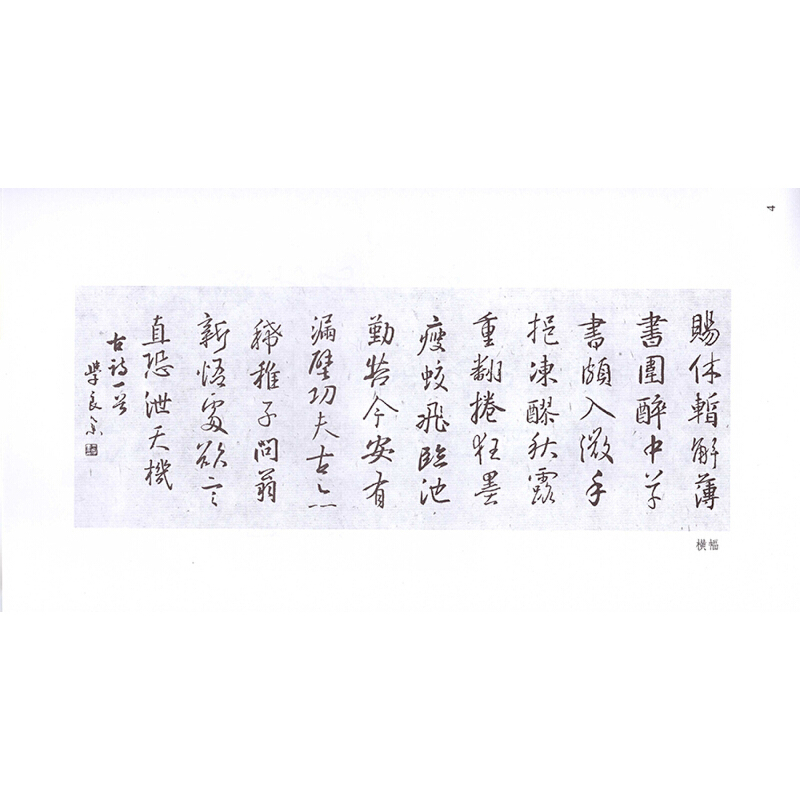 4
賜休暫解薄
書圍醉中草
書頗入微手
挹凍醪秋露
重翻捲狂墨
瘦蛟飛臨池
勤苦今安有
漏壁功夫古亦
稀稚子問翁
新悟處欲言
直恐泄天機
古詩一首
學良
横幅